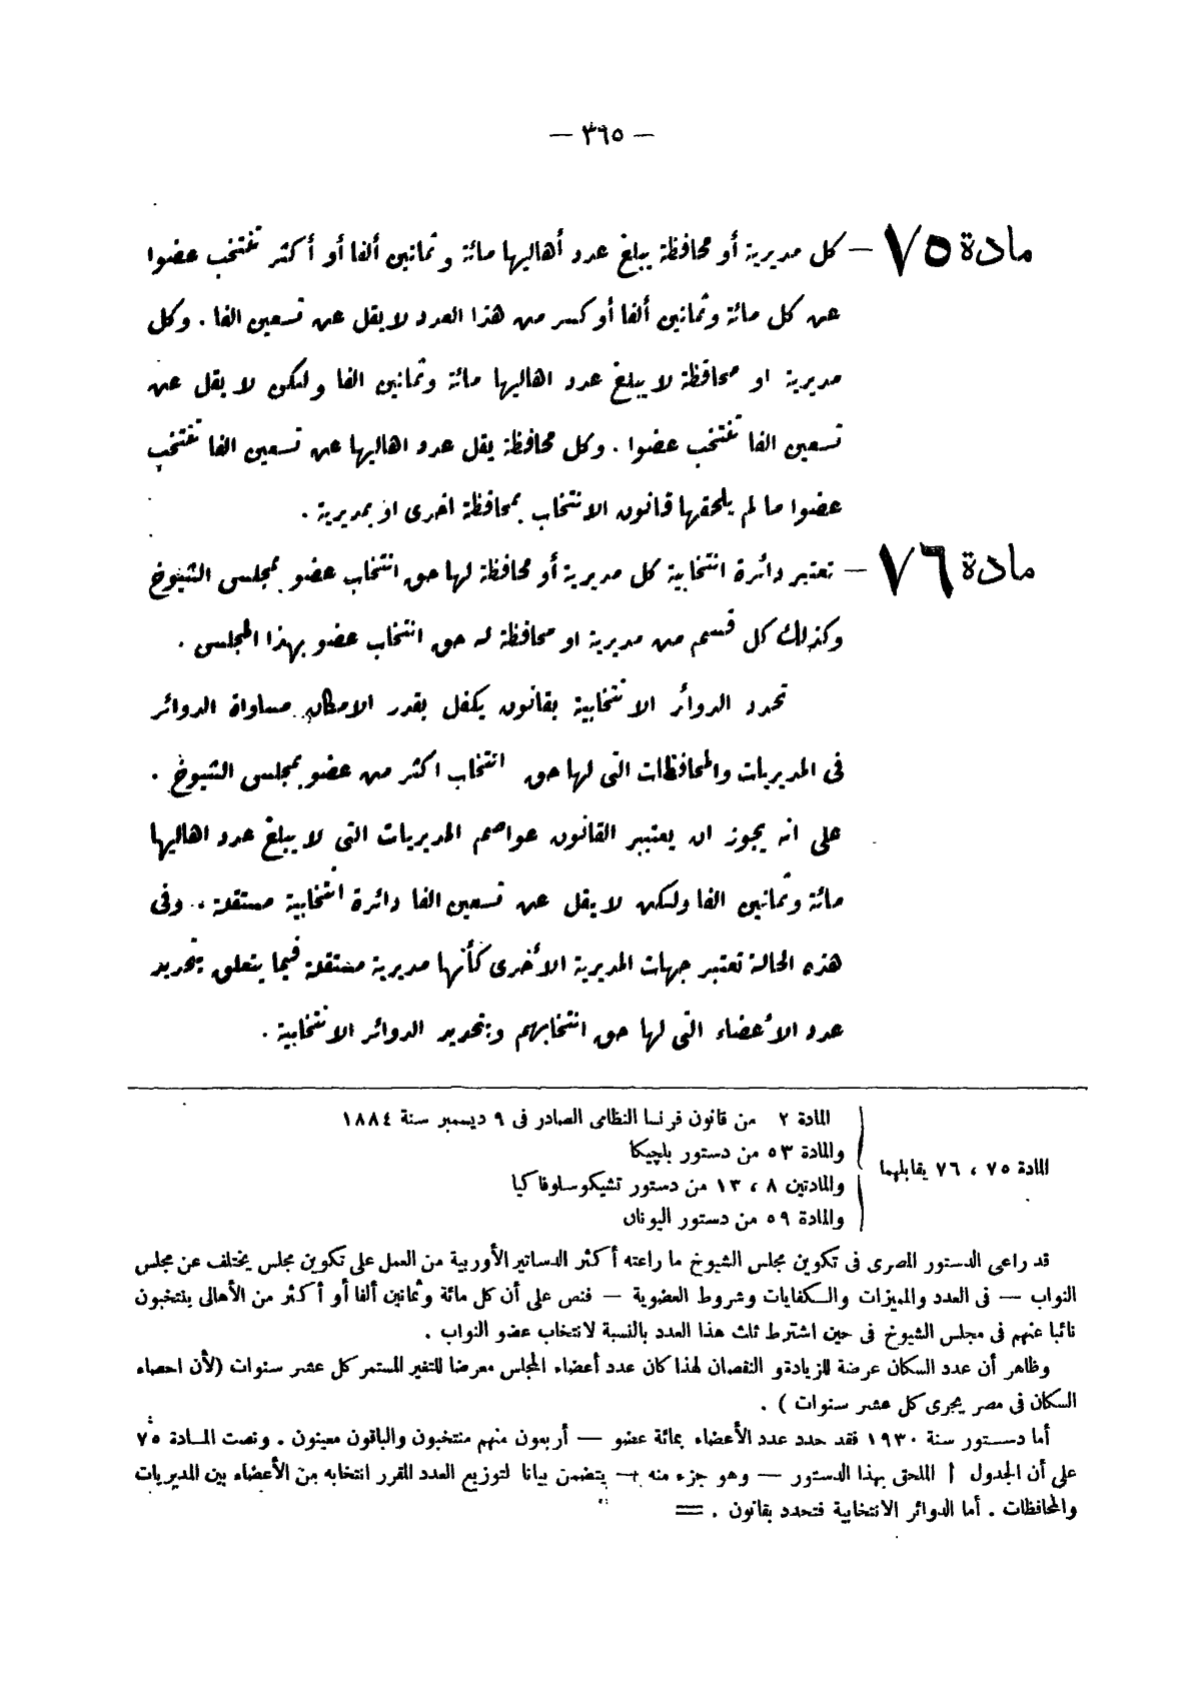 — ٣٦٥ —
مادة ٧٥ — كل مديرية أو محافظة يبلغ عدد أهاليها مائة وثمانين ألفا أو أكثر تنتخب عضوا
عن كل مائة وثمانين ألفا أو كسر من هذا العدد لا يقل عن تسعين الفا . وكل
مديرية او محافظة لا يبلغ عدد اهاليها مائة وثمانين الفا ولكن لا يقل عن
تسعين الفا تنتخب عضوا . وكل محافظة يقل عدد اهاليها عن تسعين الفا تنتخب
عضوا ما لم يلحقها قانون الانتخاب بمحافظة اخرى او بمديرية .
مادة ٧٦ — تعتبر دائرة انتخابية كل مديرية أو محافظة لها حق انتخاب عضو بمجلس الشيوخ
وكذلك كل قسم من مديرية او محافظة له حق انتخاب عضو بهذا المجلس .
تحدد الدوائر الانتخابية بقانون يكفل بقدر الامكان مساواة الدوائر
فى المديريات والمحافظات التى لها حق انتخاب اكثر من عضو بمجلس الشيوخ .
على انه يجوز ان يعتبر القانون عواصم المديريات التى لا يبلغ عدد اهاليها
مائة وثمانين الفا ولكن لا يقل عن تسعين الفا دائرة انتخابية مستقلة . وفى
هذه الحالة تعتبر جهات المديرية الأخرى كأنها مديرية مستقلة فيما يتعلق بتحديد
عدد الأعضاء التى لها حق انتخابهم وبتحديد الدوائر الانتخابية .
المادة ٧٥ ، ٧٦ يقابلهما
المادة ٢ من قانون فرنسا النظامى الصادر فى ٩ ديسمبر سنة ١٨٨٤
والمادة ٥٣ من دستور بلچيكا
والمادتين ٨ ، ١٣ من دستور تشيكوسلوفاكيا
والمادة ٥٩ من دستور اليونان
قد راعى الدستور المصرى فى تكوين مجلس الشيوخ ما راعته أكثر الدساتير الأوربية من العمل على تكوين مجلس يختلف عن مجلس
النواب — فى العدد والمميزات والكفايات وشروط العضوية — فنص على أن كل مائة وثمانين ألفا أو أكثر من الأهالى ينتخبون
نائبا عنهم فى مجلس الشيوخ فى حين اشترط ثلث هذا العدد بالنسبة لانتخاب عضو النواب .
وظاهر أن عدد السكان عرضة للزيادة و النقصان لهذا كان عدد أعضاء المجلس معرضا للتغير المستمر كل عشر سنوات (لأن احصاء
السكان فى مصر يجرى كل عشر سنوات ) .
أما دستور سنة ١٩٣٠ فقد حدد عدد الأعضاء بمائة عضو — أربعون منهم منتخبون والباقون معينون . ونصت المادة ٧٥
على أن الجدول أ الملحق بهذا الدستور — وهو جزء منه — يتضمن بيانا لتوزيع العدد المقرر انتخابه من الأعضاء بين المديريات
والمحافظات . أما الدوائر الانتخابية فتحدد بقانون . ==